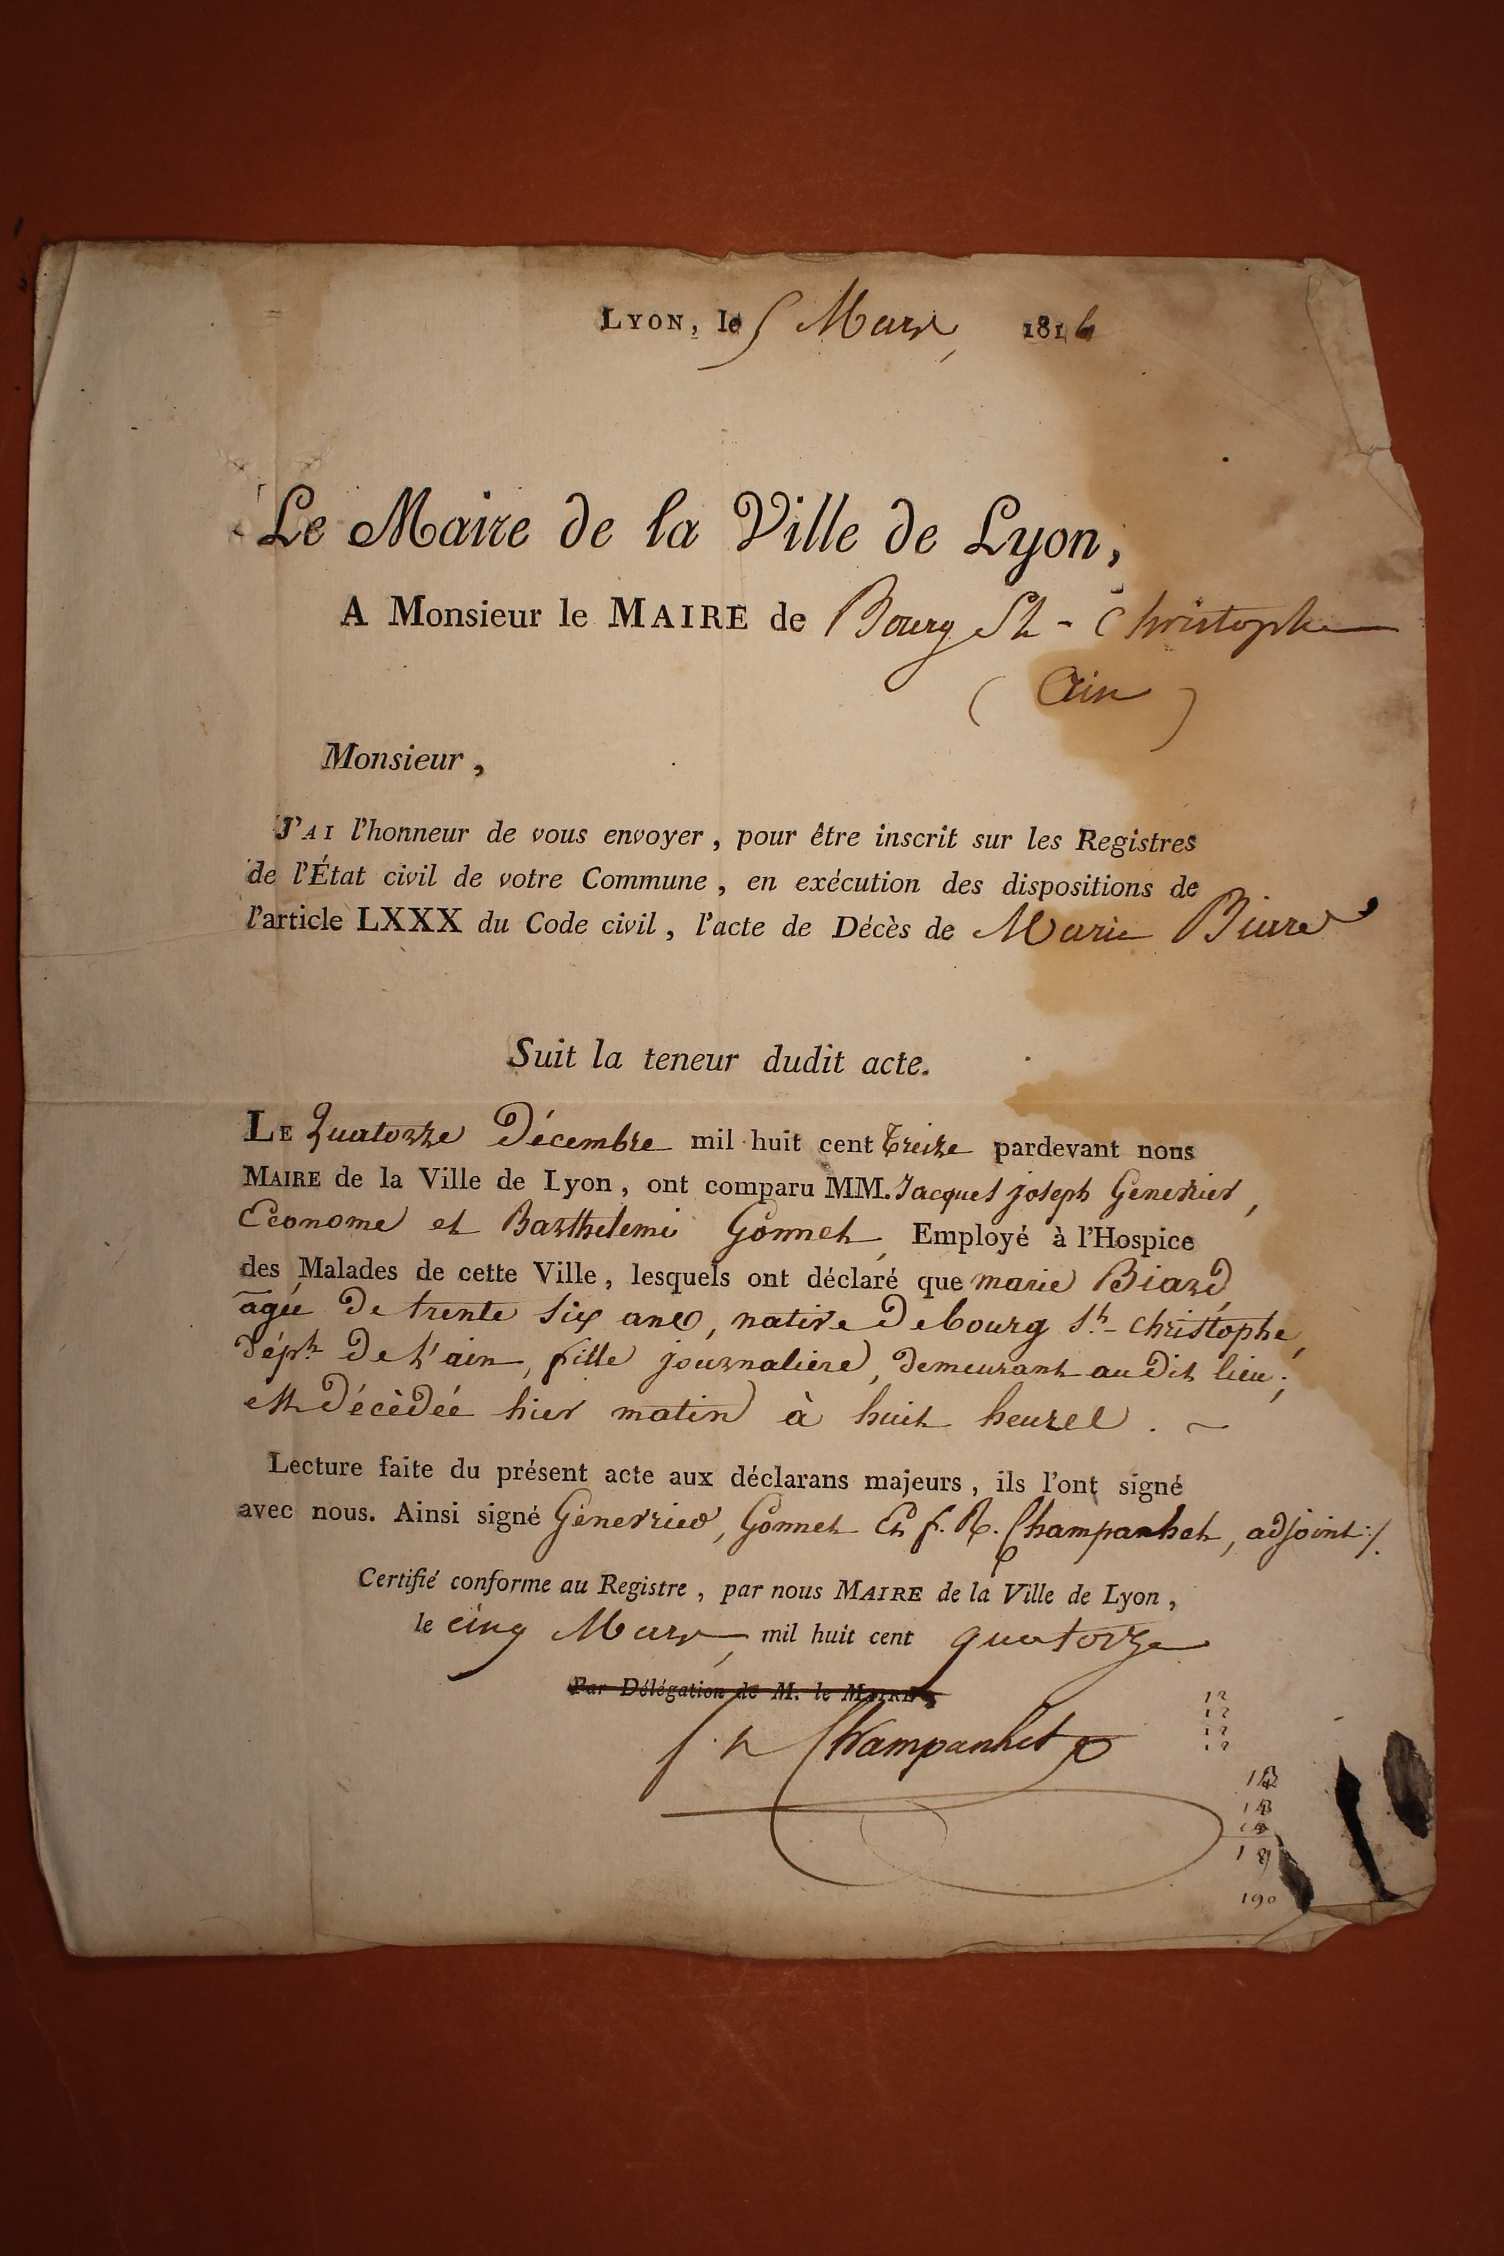 LYON, le 5 Mars 1814
Le Maire de la Ville de Lyon,
A Monsieur le MAIRE de Bourg St - Christophe
(Ain)
Monsieur,
J'AI l'honneur de vous envoyer, pour être inscrit sur les Registres
de l'État civil de votre Commune, en exécution des dispositions de
l'article LXXX du Code civil, l'acte de Décès de Marie Biard
Suit la teneur dudit acte.
LE Quatorze Décembre mil huit cent treize pardevant nous
MAIRE de la Ville de Lyon, ont comparu MM. Jacques joseph Generrier,
Econome et Barthelemi Gonnet, Employé à l'Hospice
des Malades de cette Ville, lesquels ont déclaré que marie Biard
agée de trente six ans, native de bourg St - christophe,
dépt de l'ain, fille journaliere, demeurant audit lieu;
est décèdée hier matin à huit heures. ~
Lecture faite du présent acte aux déclarans majeurs, ils l'ont signé
avec nous. Ainsi signé Génerrier, Gonnet Et f. R. Champanhet, adjoint ./.
Certifié conforme au Registre, par nous MAIRE de la Ville de Lyon,
le cinq Mars mil huit cent quatorze
Par Délégation de M. le MAIRE,
f. r Champanhet
12
12
12
12
18
190